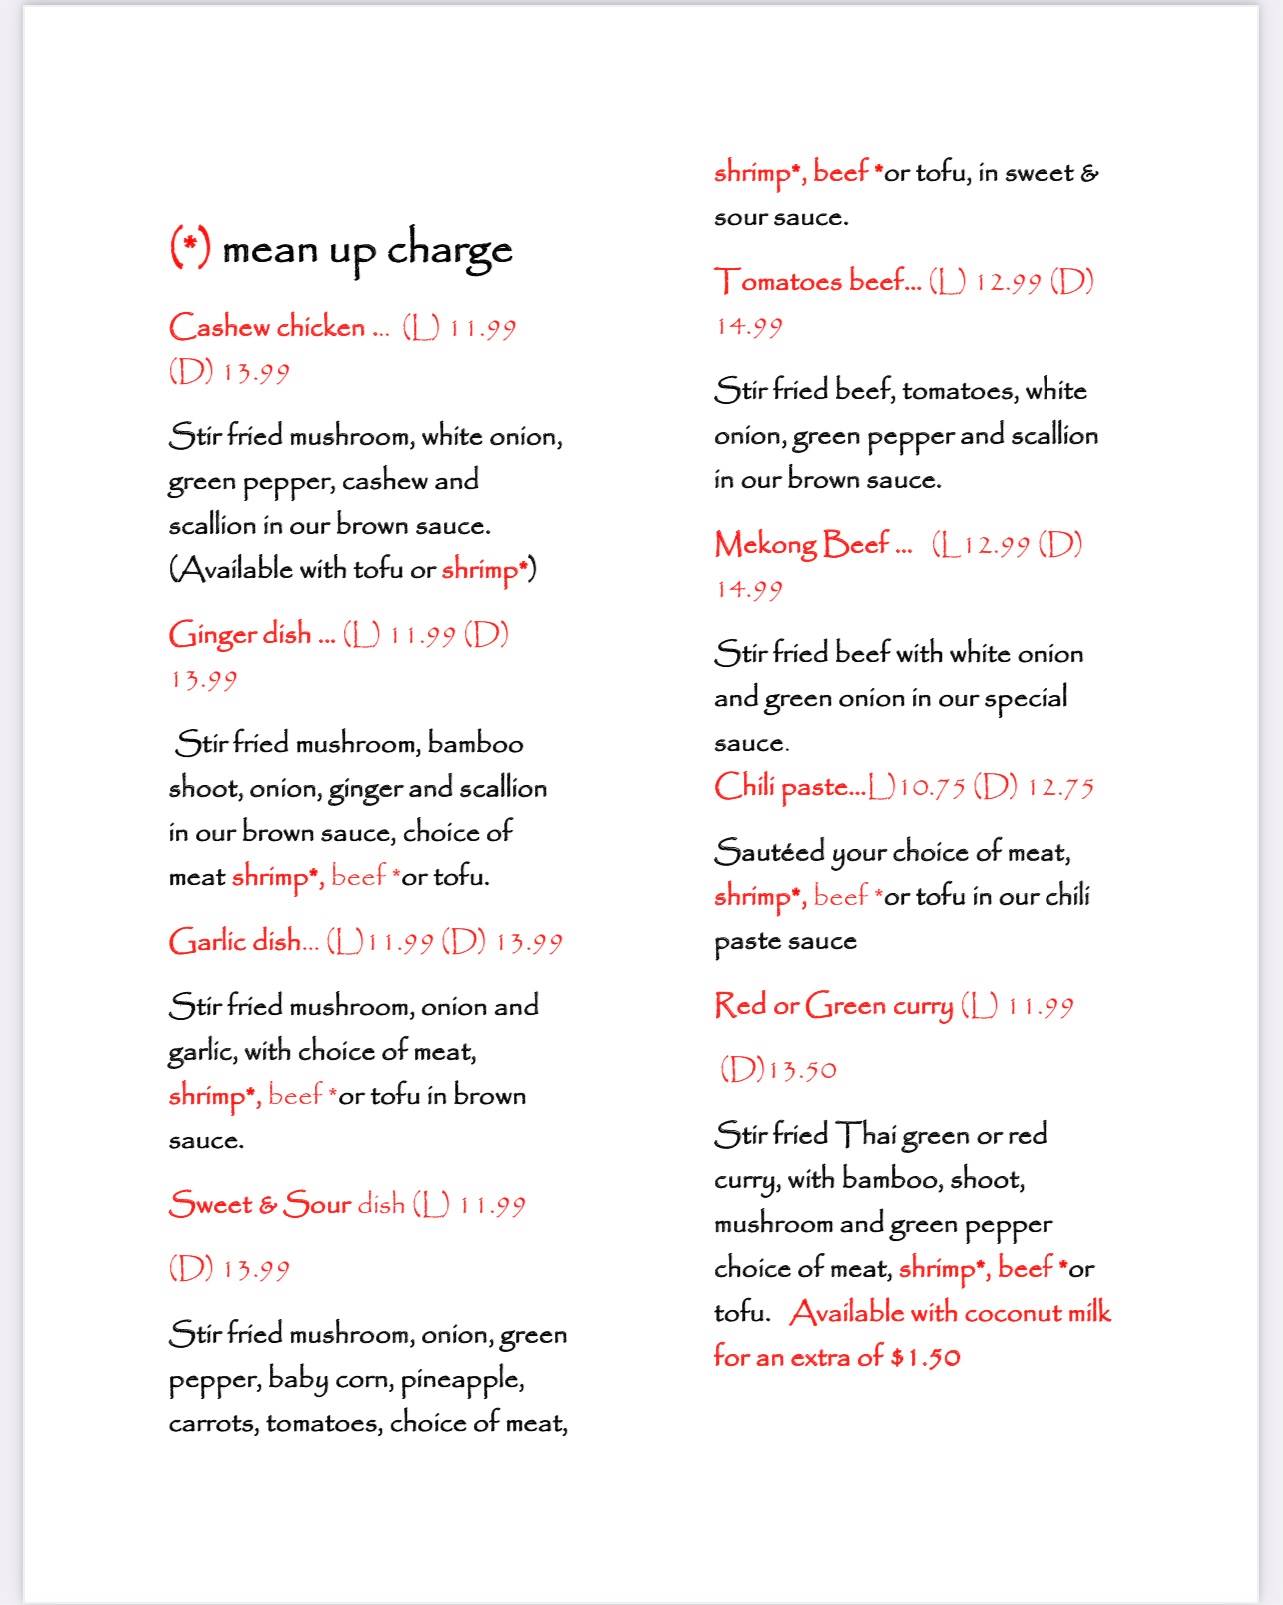 (*) mean up charge
Cashew chicken ... (L) 11.99
(D) 13.99
Stir fried mushroom, white onion,
green pepper, cashew and
scallion in our brown sauce.
(Available with tofu or shrimp*)
Ginger dish ... (L) 11.99 (D)
13.99
Stir fried mushroom, bamboo
shoot, onion, ginger and scallion
in our brown sauce, choice of
meat shrimp*, beef *or tofu.
Garlic dish... (L)11.99 (D) 13.99
Stir fried mushroom, onion and
garlic, with choice of meat,
shrimp*, beef *or tofu in brown
sauce.
Sweet & Sour dish (L) 11.99
(D) 13.99
Stir fried mushroom, onion, green
pepper, baby corn, pineapple,
carrots, tomatoes, choice of meat,
shrimp*, beef *or tofu, in sweet &
sour sauce.
Tomatoes beef... (L) 12.99 (D)
14.99
Stir fried beef, tomatoes, white
onion, green pepper and scallion
in our brown sauce.
Mekong Beef ... (L12.99 (D)
14.99
Stir fried beef with white onion
and green onion in our special
sauce.
Chili paste...L)10.75 (D) 12.75
Sautéed your choice of meat,
shrimp*, beef *or tofu in our chili
paste sauce
Red or Green curry (L) 11.99
(D)13.50
Stir fried Thai green or red
curry, with bamboo, shoot,
mushroom and green pepper
choice of meat, shrimp*, beef *or
tofu. Available with coconut milk
for an extra of $1.50